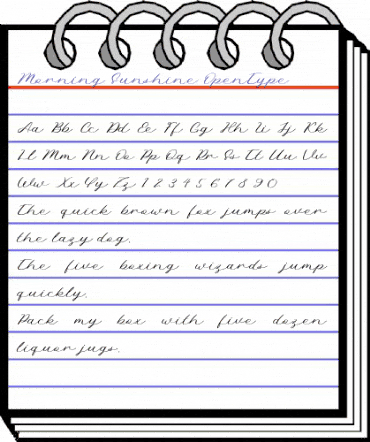 Morning Sunshine OpenType
Aa Bb Cc Dd Ee Ff Gg Hh Ii Jj Kk
Ll Mm Nn Oo Pp Qq Rr Ss Tt Uu Vv
Ww Xx Yy Zz 1 2 3 4 5 6 7 8 9 0
The quick brown fox jumps over
the lazy dog.
The five boxing wizards jump
quickly.
Pack my box with five dozen
liquor jugs.